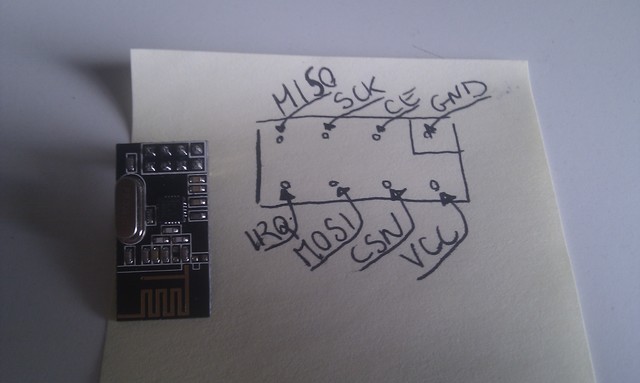 MISO SCK CE GND
IRQ MOSI CSN VCC